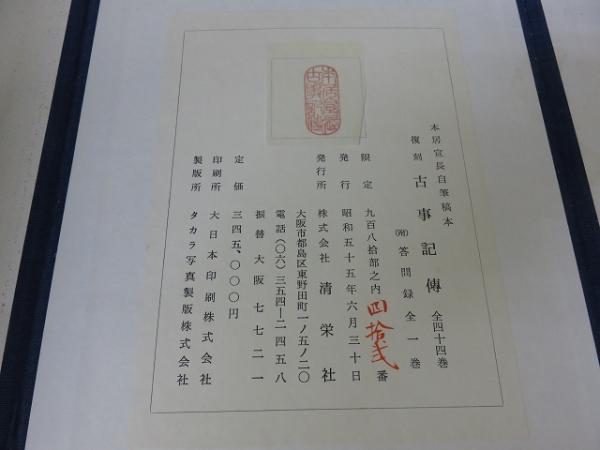 本居宣長自筆稿本
復刻 古事記傳 全四十四巻
(附) 答問録 全一巻
限定 九百八拾部之内 四拾弐 番
発行 昭和五十五年六月三十日
発行所 株式会社 清栄社
大阪市都島区東野田町一ノ五ノ二〇
電話(〇六)三五四―二四五八
振替 大阪 七七二一
定価 三四五、〇〇〇円
印刷所 大日本印刷株式会社
製版所 タカラ写真製版株式会社